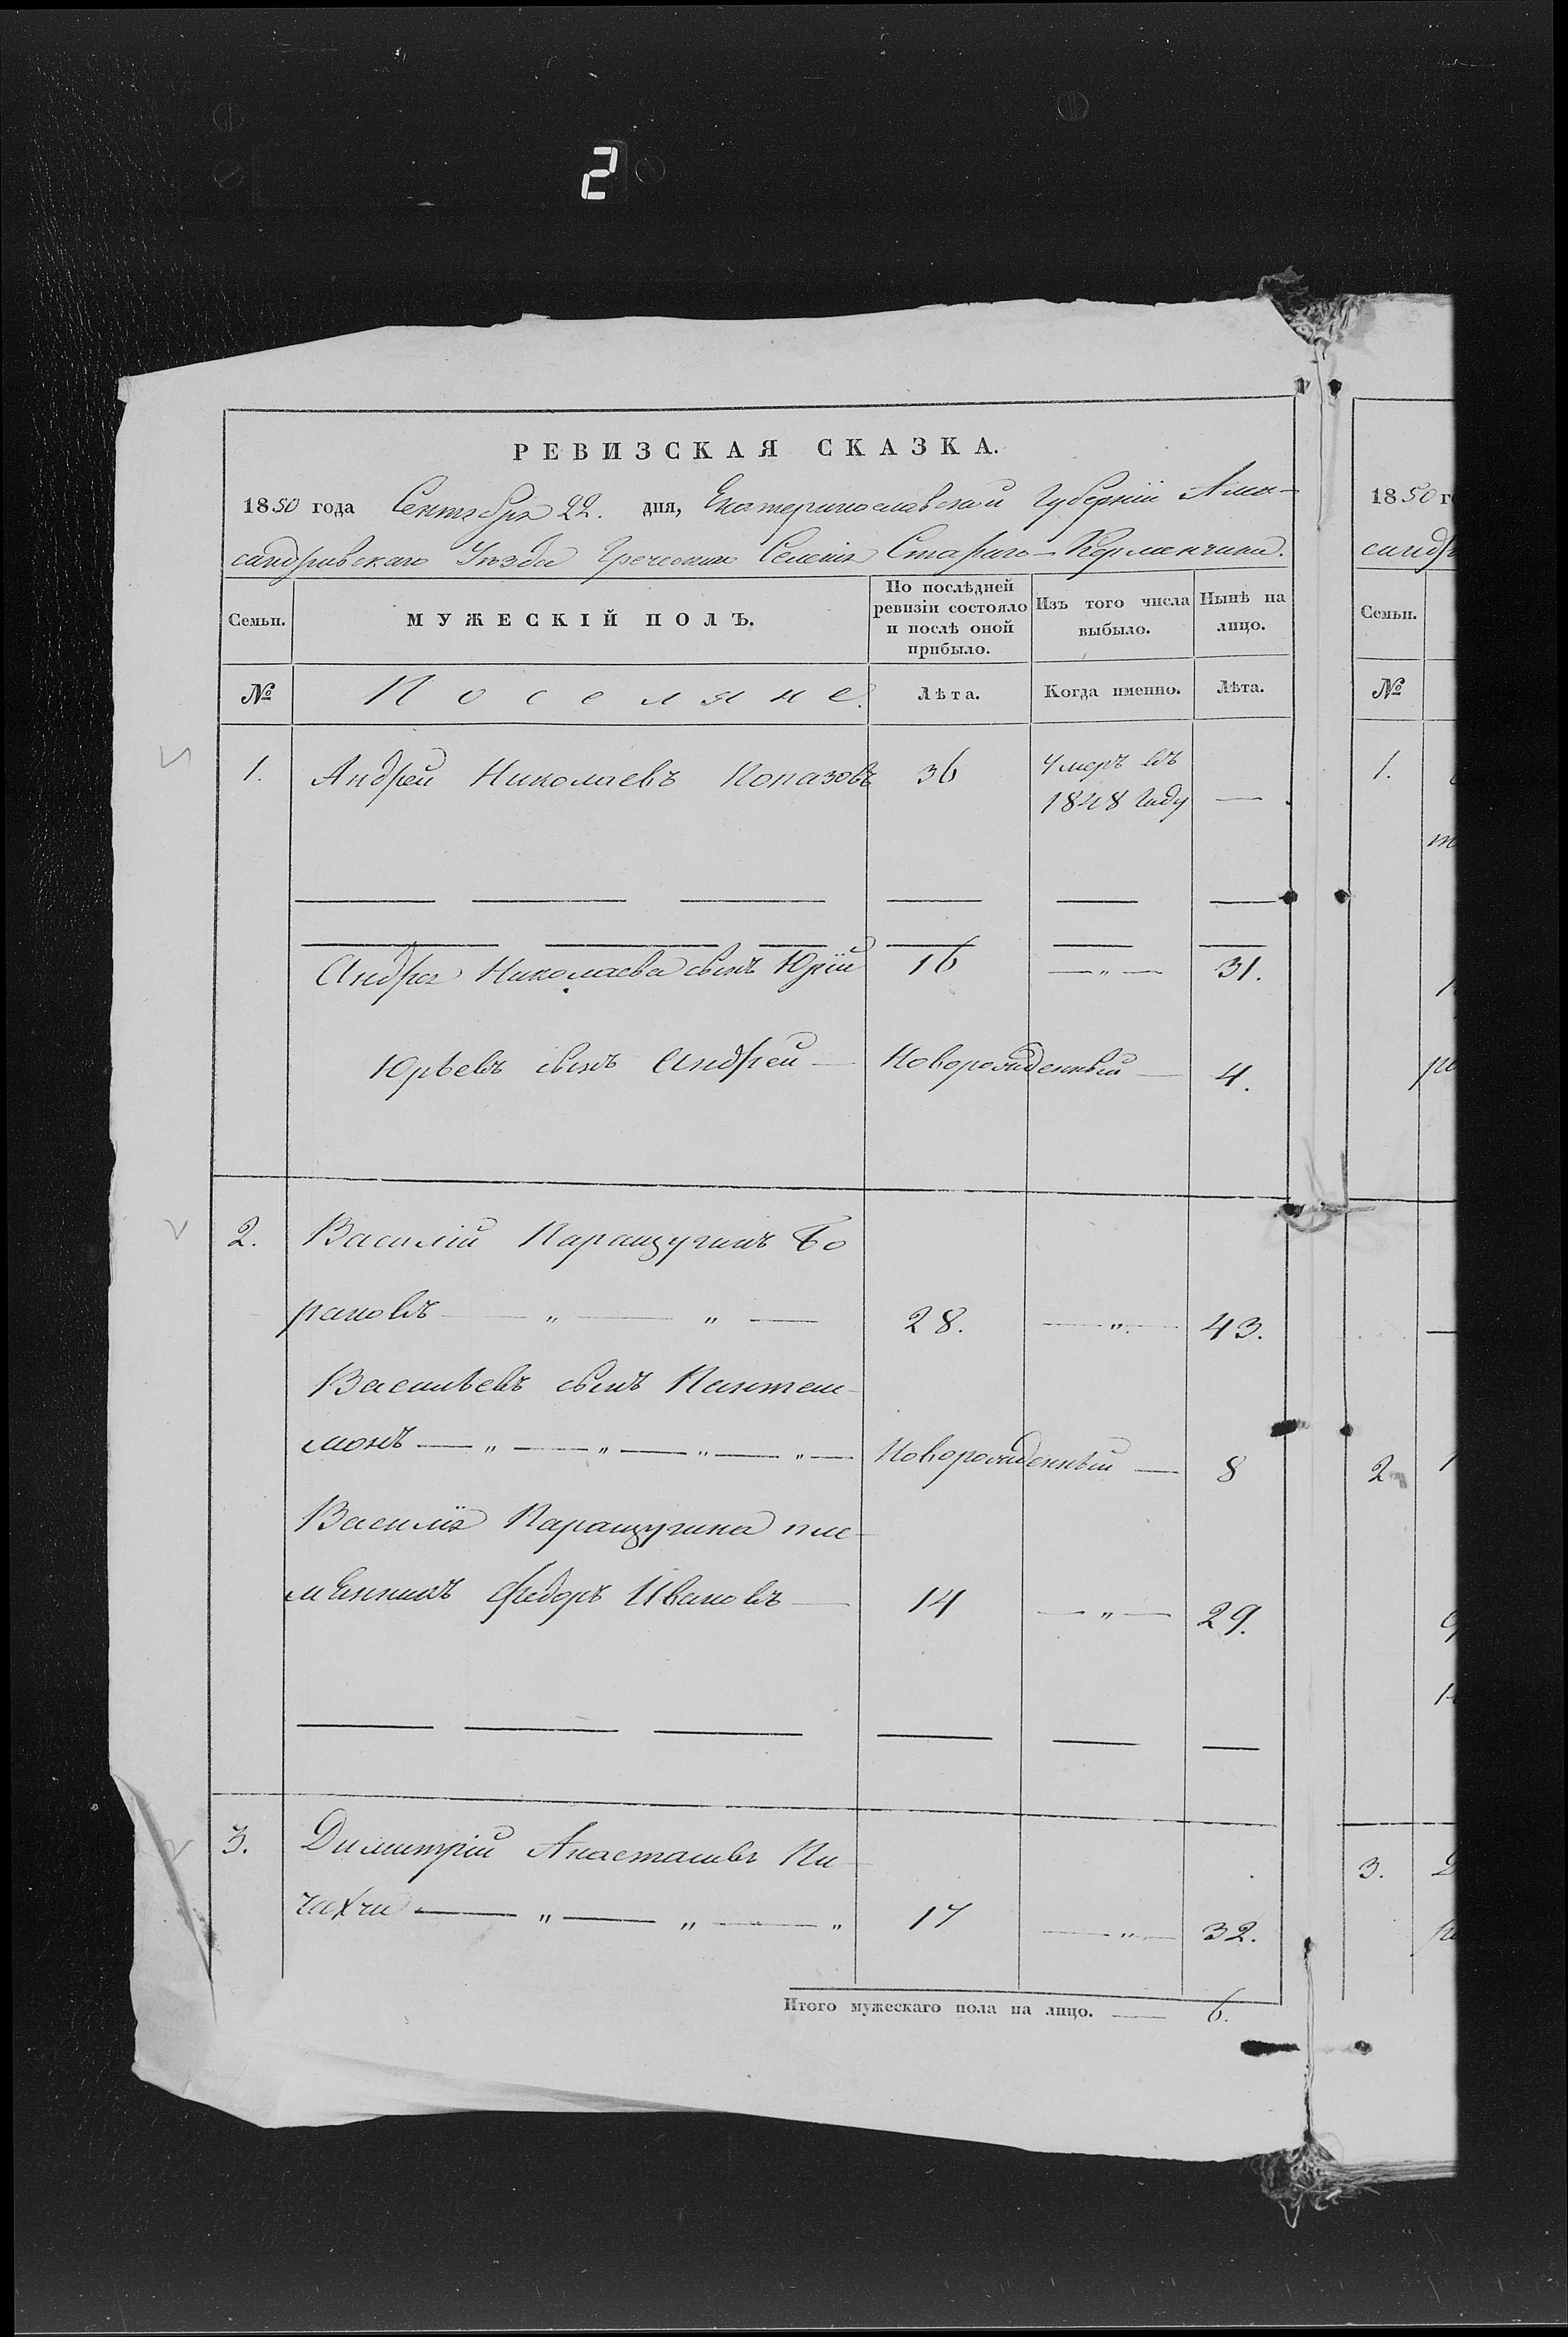 2
РЕВИЗСКАЯ СКАЗКА.
1850 года Сентября 22. дня, Екатеринославской Губерніи Алек-
сандровскаго Уѣзда Греческаго Селенія Стараго-Керменчика.
Семьи. МУЖЕСКІЙ ПОЛЪ. По послѣдней ревизіи состояло и послѣ оной прибыло. Изъ того числа выбыло. Нынѣ на лицо.
№ Поселяне. Лѣта. Когда именно. Лѣта.
1. Андрей Николаевъ Копазовъ 36 Умеръ въ
1848 Году —
Андрея Николаева сынъ Юрій 16 — „ — 31.
Юрьевъ сынъ Андрей — Новорожденный — 4.
2. Василій Паращугинъ Бо
рановъ — „ — „ — 28. — „ — 43.
Васильевъ сынъ Пантели-
монъ — „ — „ — „ — „ — Новорожденный — 8
Василія Паращугина пле-
мянникъ Федоръ Ивановъ — 14 — „ — 29.
3. Димитрій Анастасіевъ Пи-
чахчи — „ — „ — „ 17 — „ — 32.
Итого мужескаго пола на лицо. — 6.
1850 г
сандр
Семьи.
№
1.
2
3.